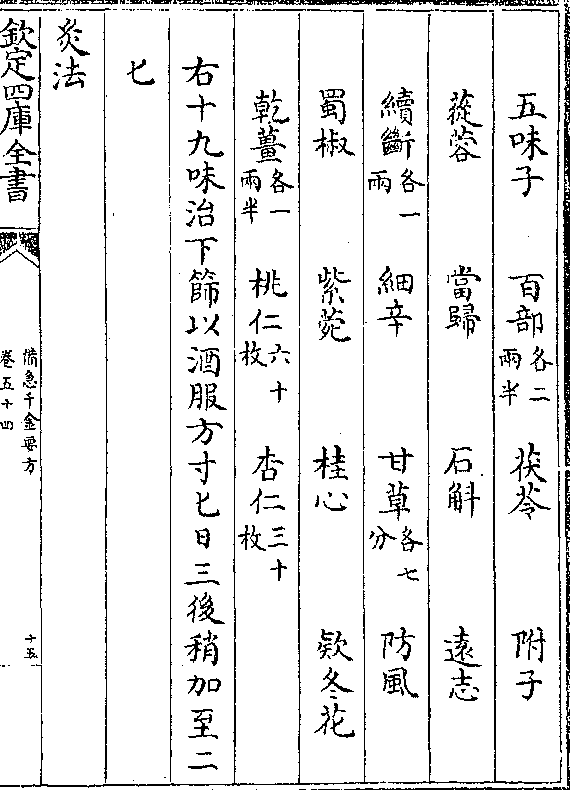 五味子 百部各二兩半 茯苓 附子
蓯蓉 當歸 石斛 遠志
續斷各一兩 細辛 甘草各七分 防風
蜀椒 紫菀 桂心 欵冬花
乾薑各一兩半 桃仁六十枚 杏仁三十枚
右十九味治下篩以酒服方寸匕日三後稍加至二
匕
灸法
欽定四庫全書
備急千金要方
卷五十四
十五